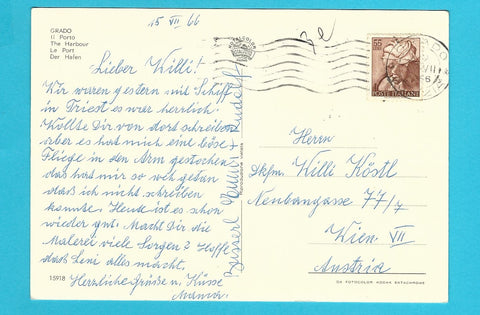 15 VII 66
GRADO
Il Porto
The Harbour
Le Port
Der Hafen
Lieber Willi!
Wir waren gestern mit Schiff
in Triest es war herrlich.
Wollte Dir von dort schreiben
aber es hat mich eine böse
Fliege in den Arm gestochen
das hat mir so weh getan
daß ich nicht schreiben
konnte. Heute ist es schon
wieder gut. Macht Dir die
Malerei viele Sorgen? Hoffe
daß Leni alles macht.
Herzliche Grüße u. Küsse
Mama.
Busserl
15918
55
POSTE ITALIANE
GRADO
Herrn
Dkfm. Willi Köstl
Neubaugasse 77/7
Wien VII
Austria
DA FOTOCOLOR KODAK EKTACHROME